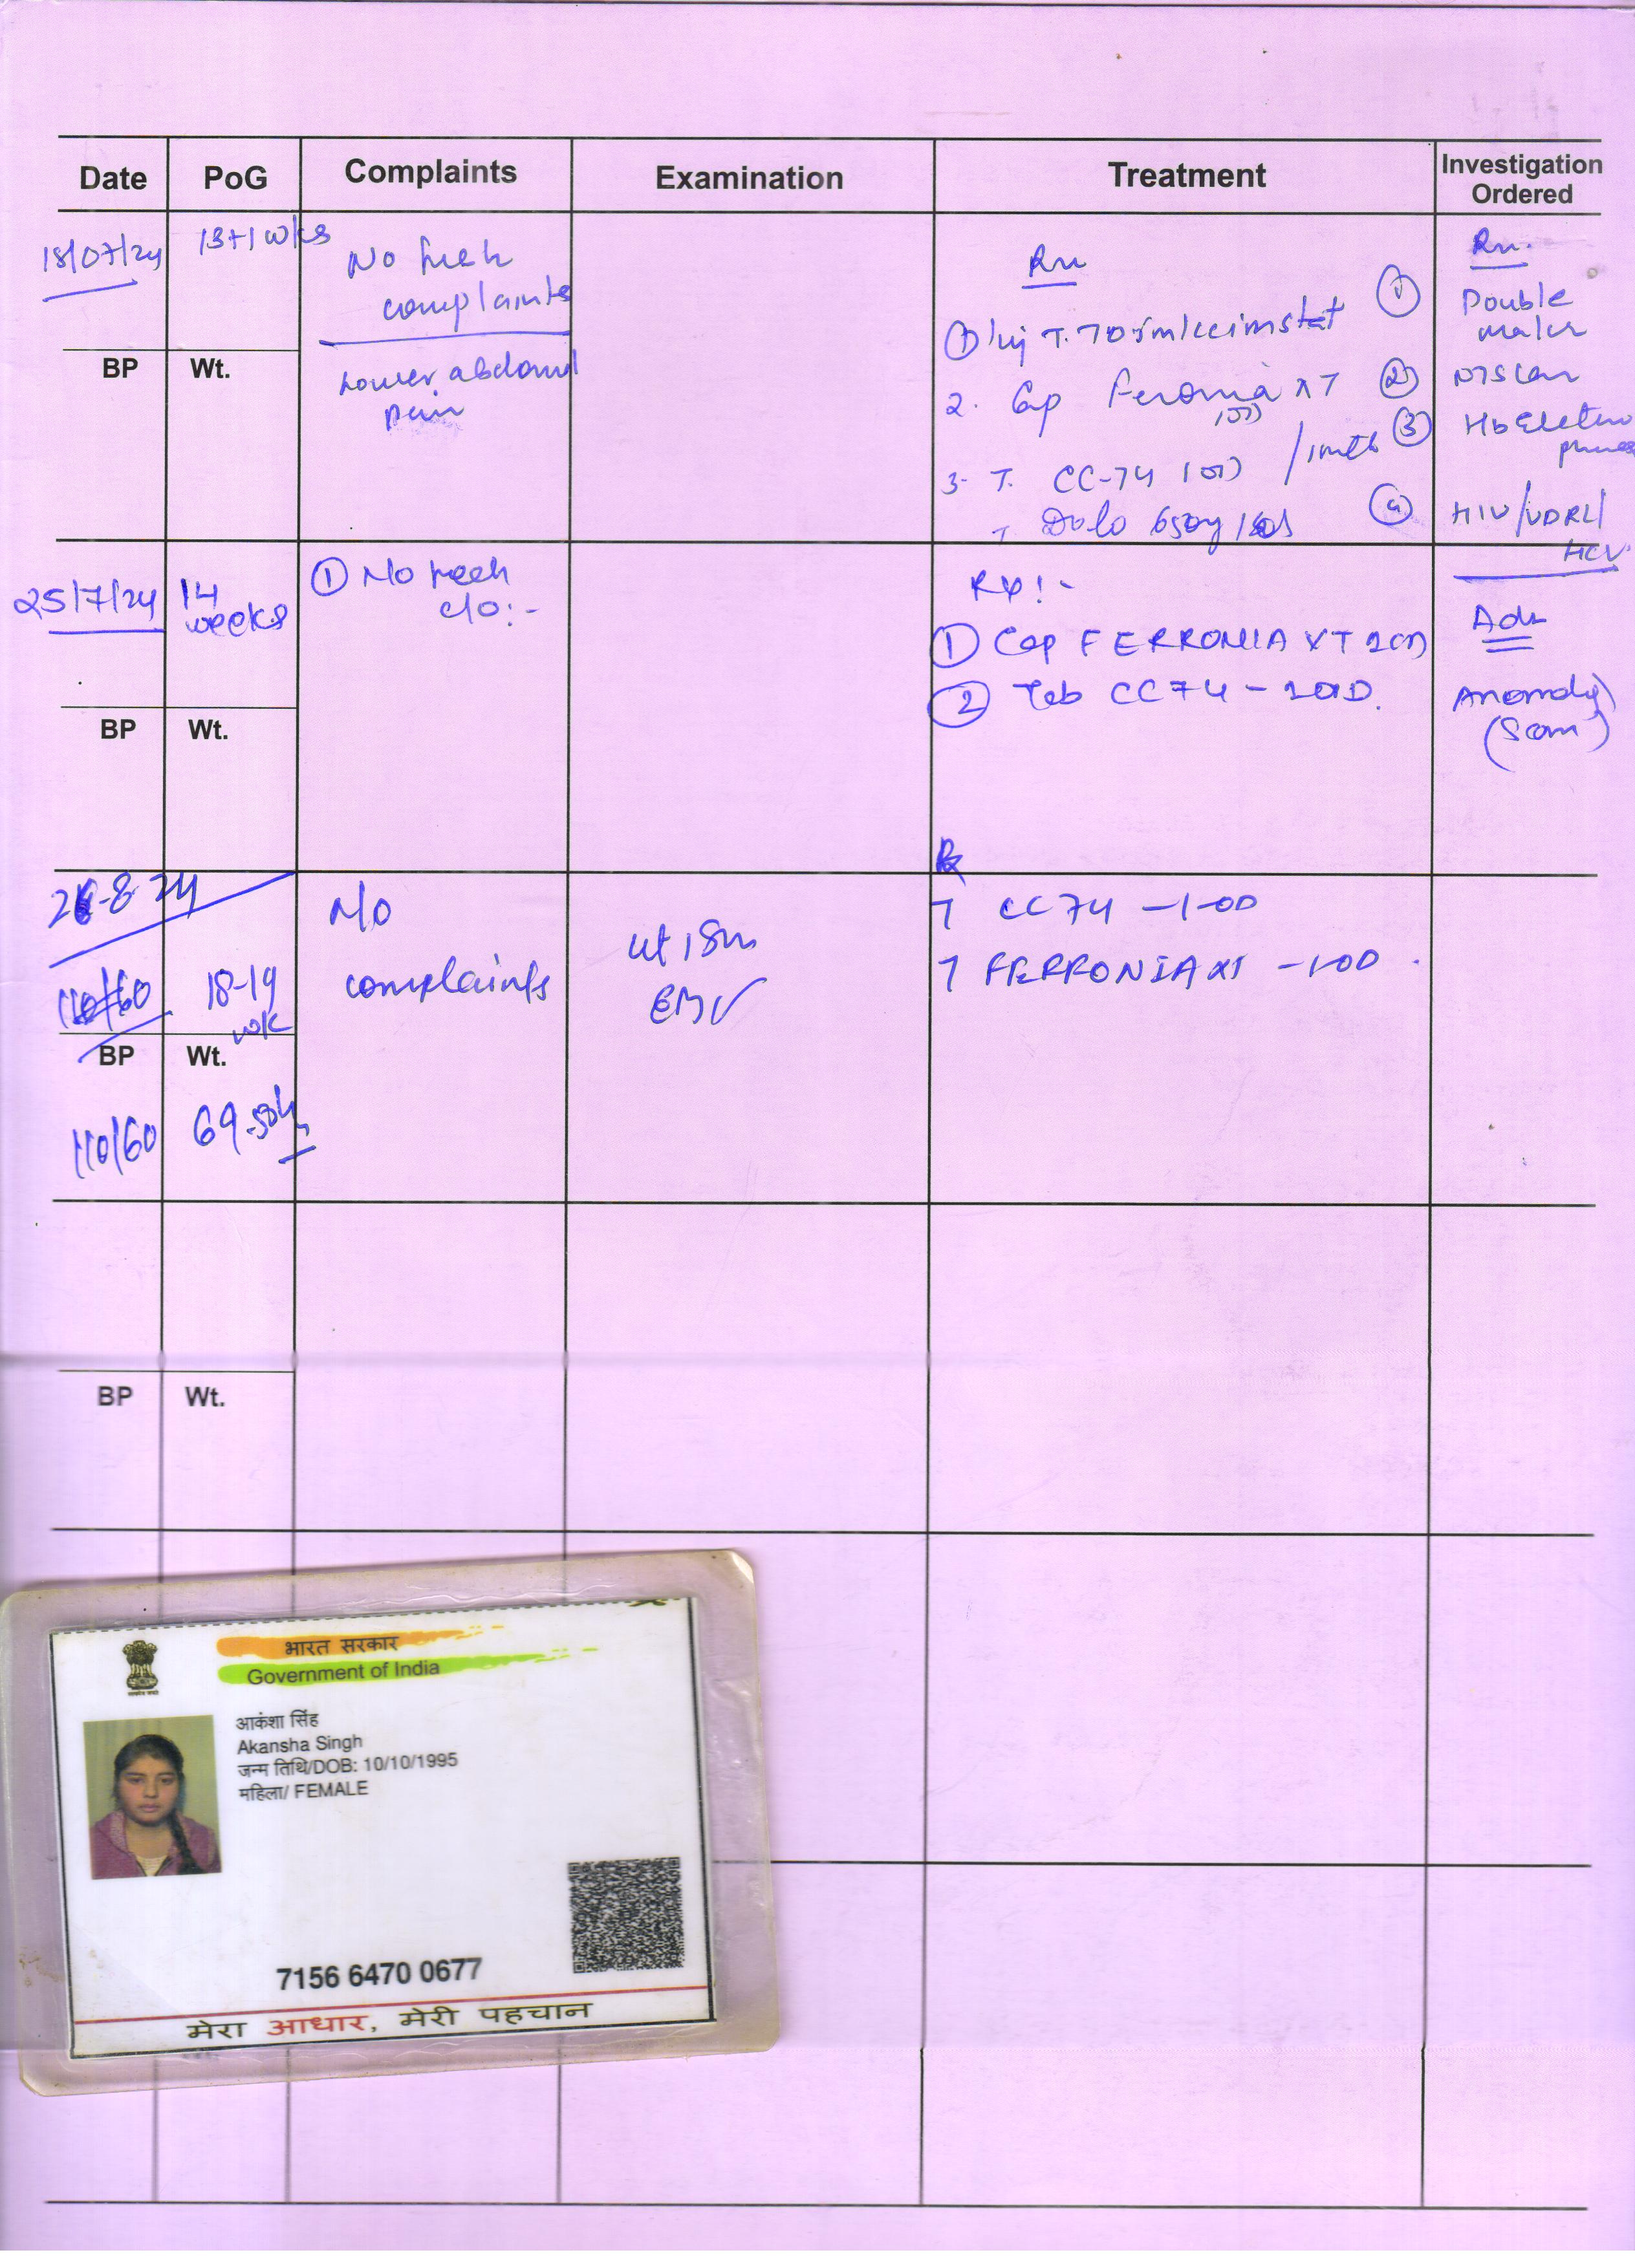 Date PoG Complaints Examination Treatment Investigation Ordered
18/07/24 13+1 wks No fresh complaints
Lower abdominal pain
BP Wt.
① Inj T.T 0.5ml/cc im stat
2. Cap Feronia XT 1OD
3. T. CC-74 1OD /1mth
T Dolo 650mg 1SOS
① Double marker
② NT Scan
③ Hb Electro
④ HIV/VDRL/
HCV
25/7/24 14 weeks ① No fresh
c/o:-
BP Wt.
Rx:-
① Cap FERRONIA XT 1OD
② Tab CC74 - 1OD.
Adv
Anomaly
(Scan)
-8-24
110/60 18-19 wk
BP Wt.
110/60 69.
No
complaints
Rx
T CC74 -1-OD
T FERRONIA XT -1-OD
BP Wt.
भारत सरकार
Government of India
आकंशा सिंह
Akansha Singh
जन्म तिथि/DOB: 10/10/1995
महिला/ FEMALE
7156 6470 0677
मेरा आधार, मेरी पहचान